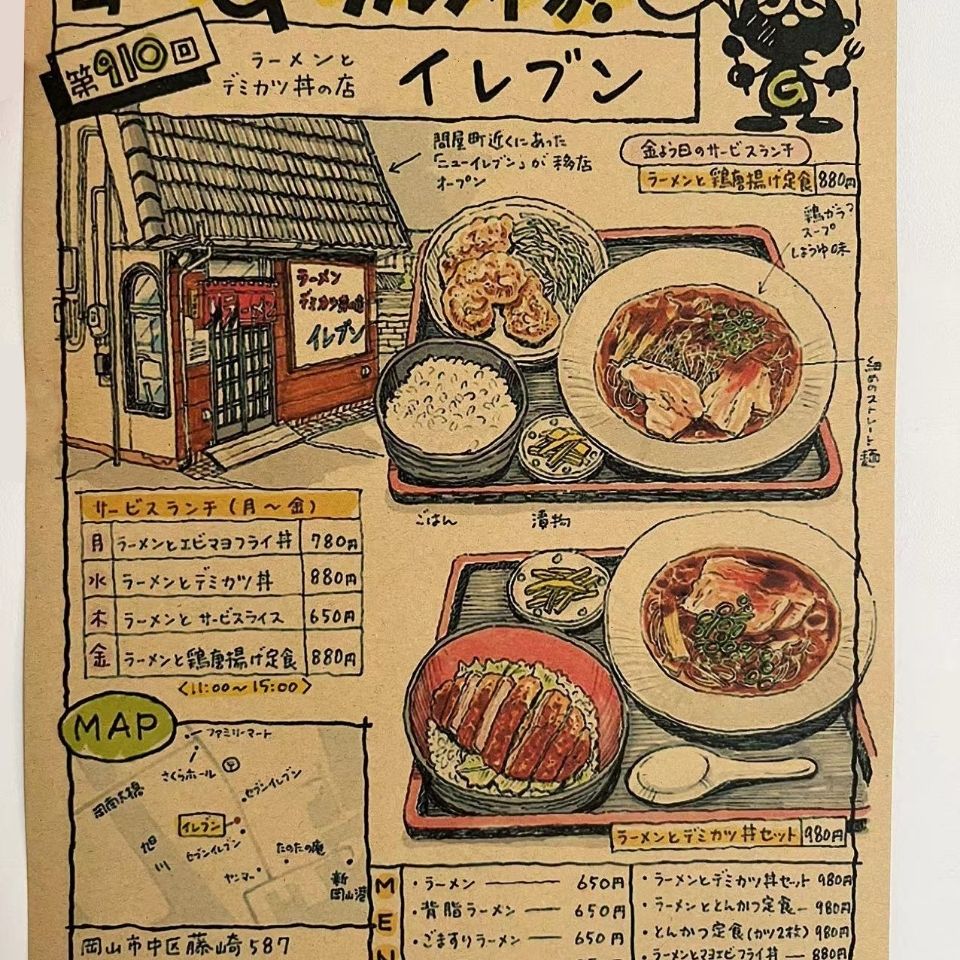 第910回
ラーメンと
デミカツ丼の店
イレブン
G
問屋町近くにあった
「ニューイレブン」が移店
オープン
金よう日のサービスランチ
ラーメンと鶏唐揚げ定食 880円
鶏ガラ
スープ
しょうゆ味
ラーメン
デミカツ丼の店
イレブン
ラーメン
細めのストレート麺
ごはん
漬物
サービスランチ(月〜金)
月 ラーメンとエビマヨフライ丼 780円
水 ラーメンとデミカツ丼 880円
木 ラーメンとサービスライス 650円
金 ラーメンと鶏唐揚げ定食 880円
<11:00〜15:00>
MAP
ファミリーマート
さくらホール
セブンイレブン
岡南大橋
イレブン
旭川
セブンイレブン
たのたの庵
ヤンマー
新岡山港
岡山市中区藤崎587
ラーメンとデミカツ丼セット 980円
MEN
・ラーメン 650円
・背脂ラーメン 650円
・ごますりラーメン 650円
・ラーメンとデミカツ丼セット 980円
・ラーメンととんかつ定食 980円
・とんかつ定食(カツ2枚) 980円
・ラーメンとマヨエビフライ丼 880円